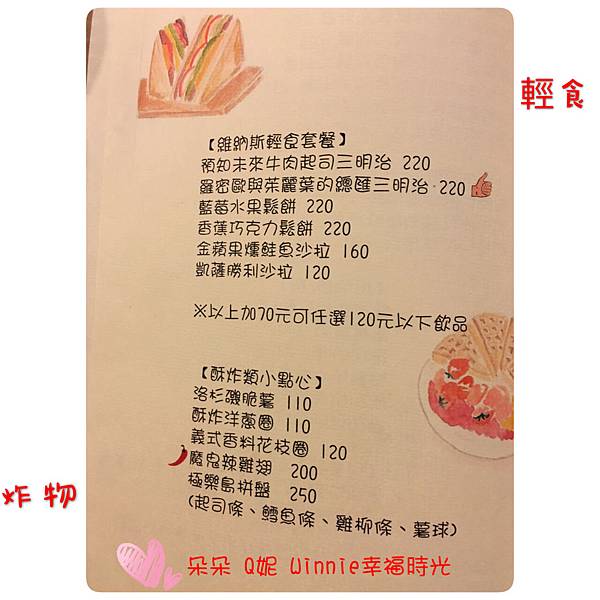 輕食
【維納斯輕食套餐】
預知未來牛肉起司三明治 220
羅密歐與茱麗葉的總匯三明治 220
藍莓水果鬆餅 220
香蕉巧克力鬆餅 220
金蘋果燻鮭魚沙拉 160
凱薩勝利沙拉 120
※以上加70元可任選120元以下飲品
【酥炸類小點心】
洛杉磯脆薯 110
酥炸洋蔥圈 110
義式香料花枝圈 120
魔鬼辣雞翅 200
極樂島拼盤 250
(起司條、鱈魚條、雞柳條、薯球)
炸物
朵朵 Q妮 Winnie幸福時光